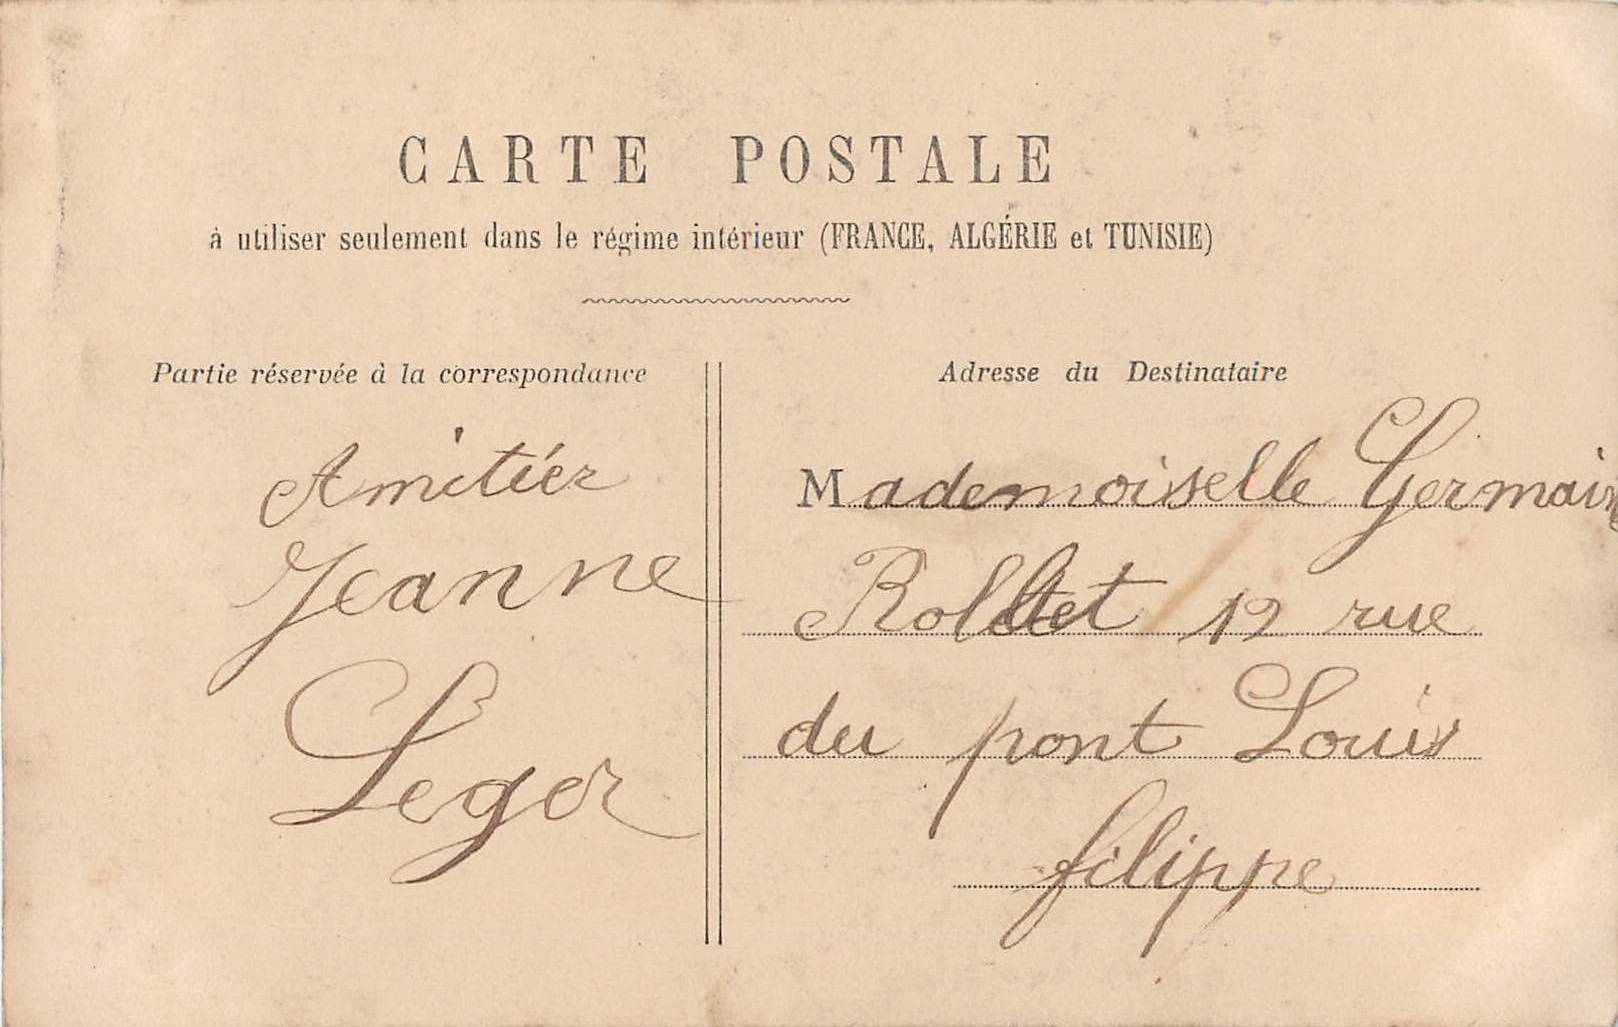 CARTE POSTALE
à utiliser seulement dans le régime intérieur (FRANCE, ALGÉRIE et TUNISIE)
Partie réservée à la correspondance
Amitiér
Jeanne
Leger
Adresse du Destinataire
Mademoiselle Germain
12 rue
du pont Louis
filippe